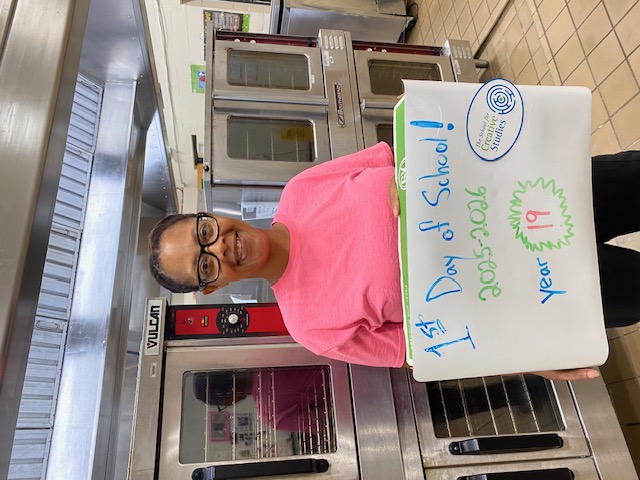 The School for
Creative
Studies
1st Day of School!
2025-2026
year 19
VULCAN